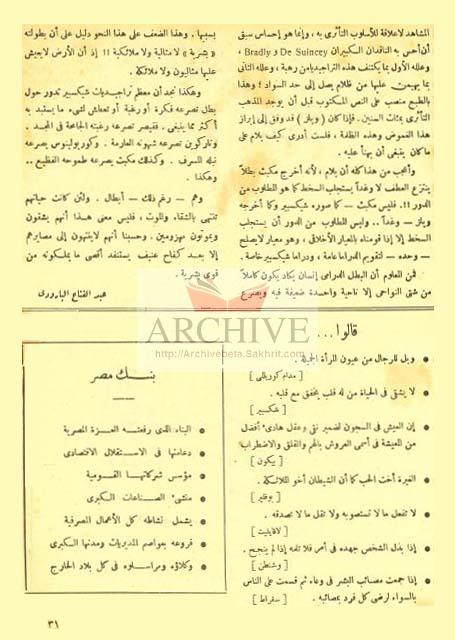 المشاهد لاعلاقة للأسلوب التأثرى به ، وإنما هو إحساس سبق
أن أحس به الناقدان السكبيران De Suincey و Bradly ،
وعلله الأول بما يكتنف هذه التراجيديا من رهبة ، وعلله الثانى
بما يهيمن عليها من ظلام يصل إلى حد السواد ؛ وهذا
بالطبع منصب على النص المكتوب قبل أن يوجد المذهب
التأثرى بمئات السنين . فإذا كان ( ويلز ) قد وفق إلى إبراز
هذا الغموض وهذه الظلمة ، فلست أدرى كيف يلام على
ماكان ينبغى أن يهنأ عليه .
وأعجب من هذا كله أن يلام ، لأنه أخرج مكبث بطلاً
ينتزع العطف لا وغداً يستجلب السخط كما هو المطلوب من
الدور !! . فليس مكبث – كما صوره شيكسبير وكما أخرجه
ويلز – وغداً .. وليس المطلوب من الدور أن يستجلب
السخط إلا إذا قومناه بالمعيار الأخلاقى ، وهو معيار لايصلح
– وحده – لتقويم الدراما عامة ، ودراما شيكسبير خاصة .
فمن المعلوم أن البطل الدرامى إنسان يكاد يكون كاملاً
من شتى النواحى إلا ناحية واحدة ضعيفة فيه ويصرع
بسببها . وهذا الضعف على هذا النحو دليل على أن بطولته
« بشرية » لا مثالية ولا ملائكية !! إذ أن الأرض لايعيش
عليها مثاليون ولا ملائكة .
وهكذا نجد أن معظم تراجيديات شيكسبير تدور حول
بطل تصرعه فكرة أو رغبة أو تعطش لشىء ما يستبد به
أكثر مما ينبغى . فقيصر تصرعه رغبته الجامحة فى المجد .
وتاركوين تصرعه شهوته العارمة . وكوريولينوس يصرعه
نبله المسرف . وكذلك مكبث يصرعه طموحه الفظيع ..
وهكذا .
وهم – رغم ذلك – أبطال . ولئن كانت حياتهم
تنتهى بالشقاء والموت ، فليس معنى هذا أنهم يشقون
ويموتون مهزومين . وحسبنا أنهم لاينتهون إلى مصائرهم
إلا بعد كفاح عنيف يستنفد أقصى ما يملكونه من
قوى بشرية .
عبد الفتاح البارودى
ARCHIVE
http://Archivebeta.Sakhrit.com
قالوا ...
● ويل للرجال من عيون المرأة الجميلة .
[ مدام كوريللى ]
● لا يشقى فى الحياة من له قلب يخفق مع قلبه .
[ شكسبير ]
● إن العيش فى السجون لضمير نقى وعقل هادىء أفضل
من المعيشة فى أسمى العروش بالهم والقلق والاضطراب
[ بيكون ]
● الغيرة أخت الحب كما أن الشيطان أخو الملائكة .
[ بوفلير ]
● لا تفعل ما لا تستصوبه ولا تقل ما لا تصدقه .
● إذا بذل الشخص جهده فى أمر فلا تلمه إذا لم ينجح .
[ وشنطن ]
● إذا جمعت مصائب البشر فى وعاء ثم قسمت على الناس
بالسواء لرضى كل فرد بمصائبه .
[ سقراط ]
بنك مصر
● البناء الذى رفعته العزة المصرية
● دعامتها فى الاستقلال الاقتصادى
● مؤسس شركاتها القومية
● منشىء الصناعات الكبرى
● يشمل نشاطه كل الأعمال المصرفية
● فروعه بعواصم المديريات ومدنها الكبرى
● وكلاؤه ومراسلوه فى كل بلاد الخارج
٣١